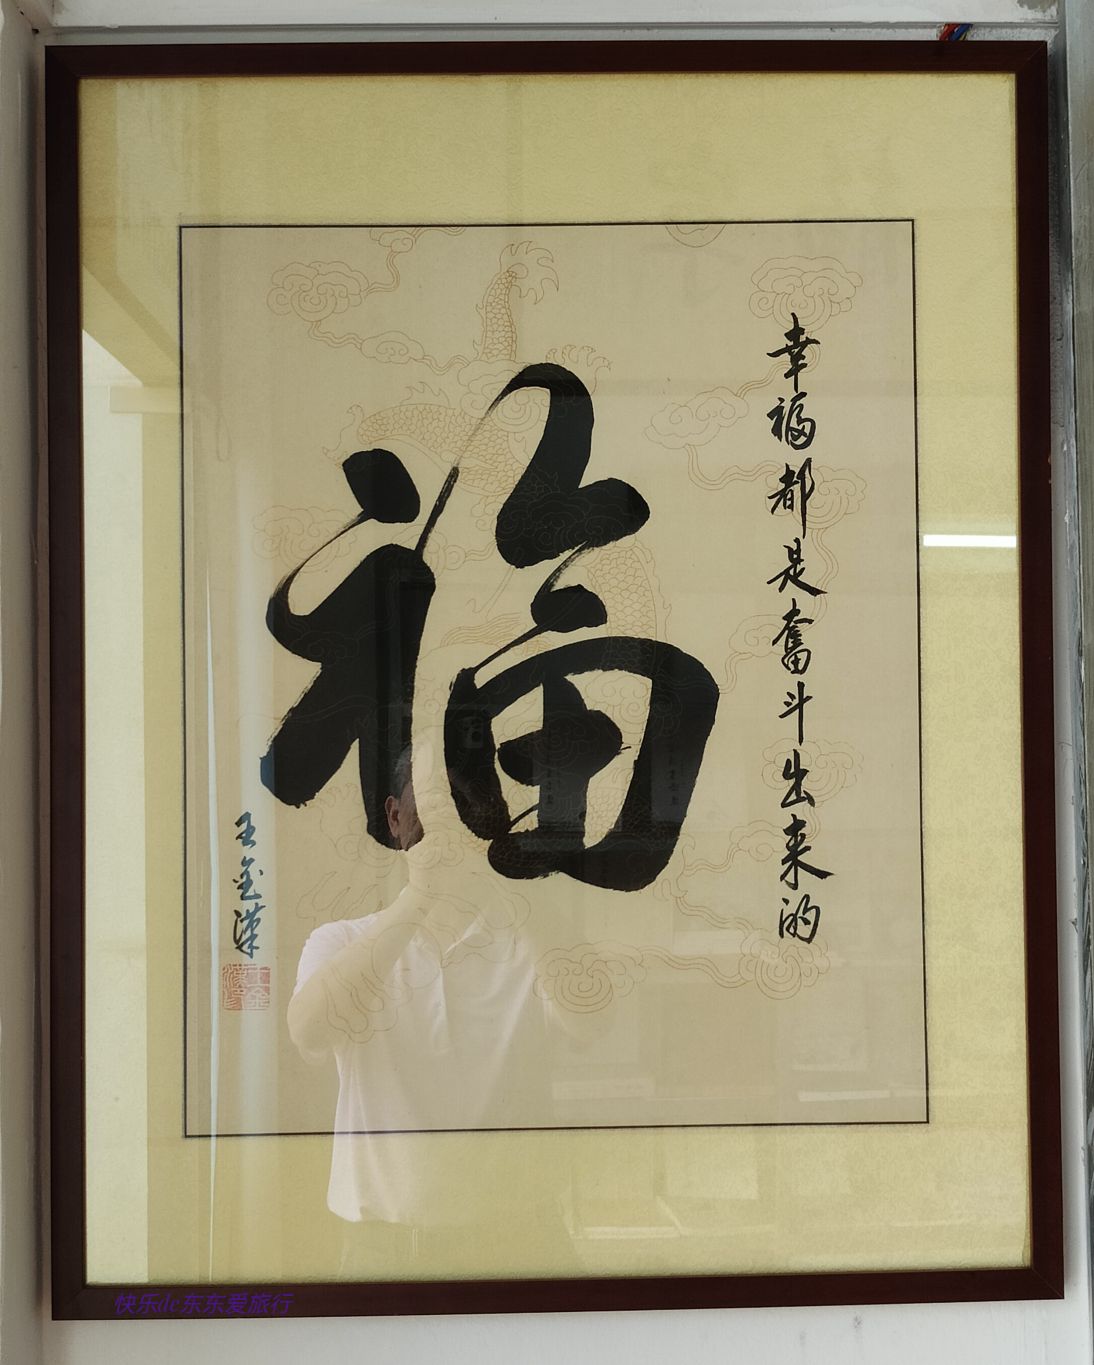 幸福都是奋斗出来的
福
王金漢
王金漢印
快乐de东东爱旅行